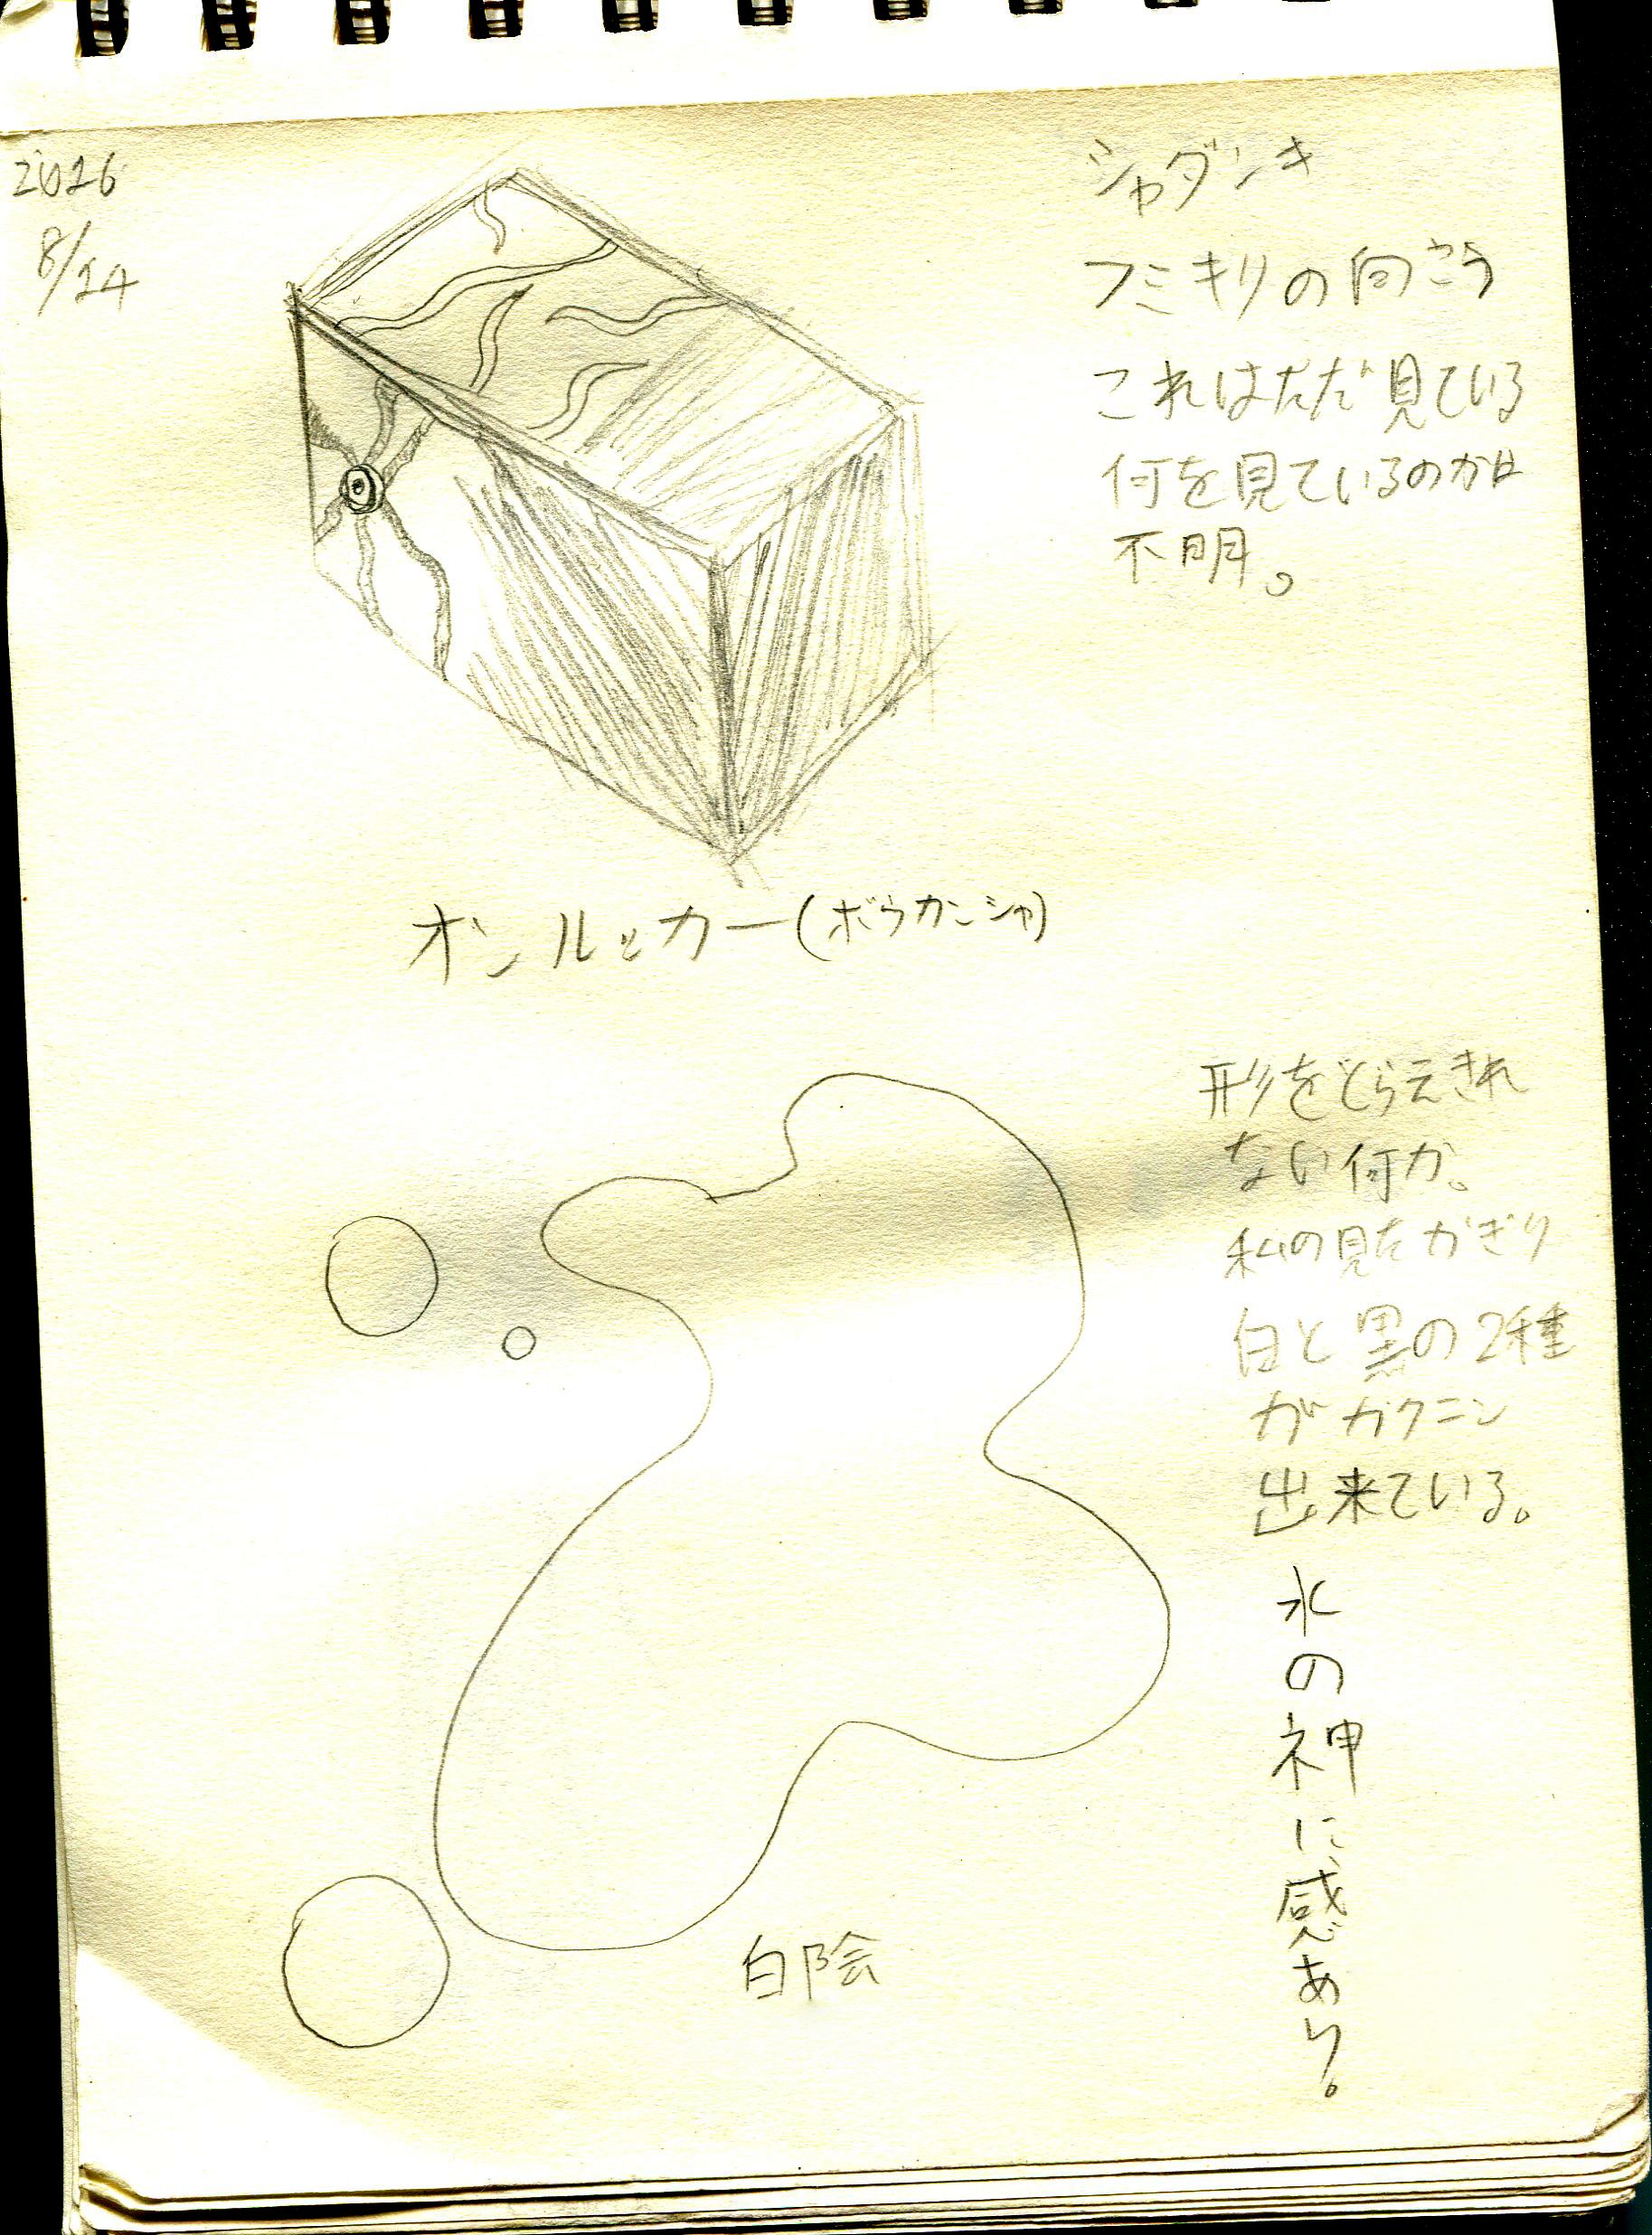 2016
8/14
シャダンキ
フミキリの向こう
これはただ見ている
何を見ているのかは
不明。
オンルッカー(ボウカンシャ)
形をとらえきれ
ない何か。
私の見たかぎり
白と黒の2種
がカクニン
出来ている。
水の神に感あり。
白陰